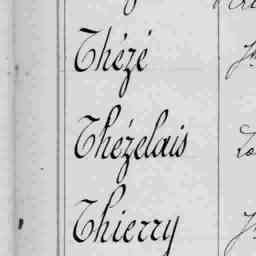 Thézé
Thézelais
Thierry